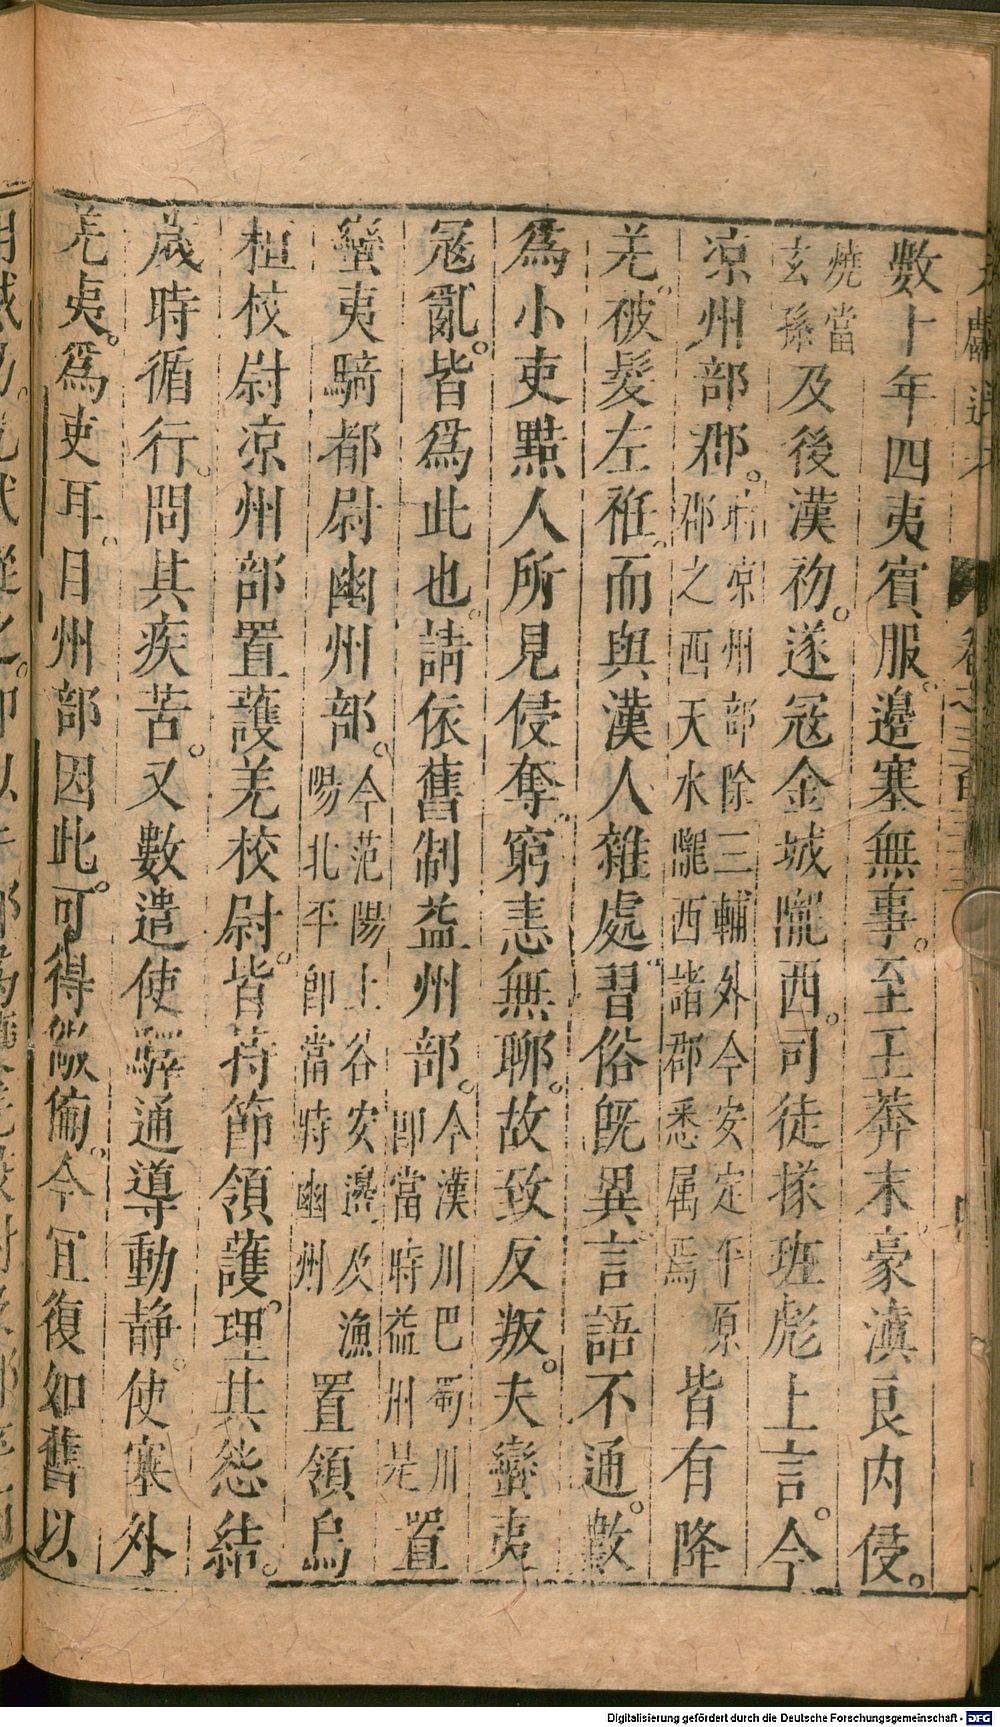 數十年四夷賓服。邊塞無事。至王莽末豪滇良内侵。
燒當玄孫及後漢初。遂冦金城隴西。司徒掾班彪上言。今
凉州部郡。時凉州部除三輔外今安定平原郡之西天水隴西諸郡悉属焉皆有降
羌。被髮左衽。而與漢人雜處。習俗旣異。言語不通。數
爲小吏黠人所見侵奪。窮恚無聊。故致反叛。夫蠻夷
冦亂。皆爲此也。請依舊制益州部。今漢川巴蜀川即當時益州是置
蠻夷騎都尉幽州部。今范陽上谷安邊及漁陽北平即當時幽州置領烏
桓校尉凉州部置護羌校尉。皆持節領護。理其怨結。
歲時循行。問其疾苦。又數遣使驛通導動静。使塞外
羌夷。爲吏耳目。州部因此。可得儆備。今宜復如舊以
Digitalisierung gefördert durch die Deutsche Forschungsgemeinschaft - DFG